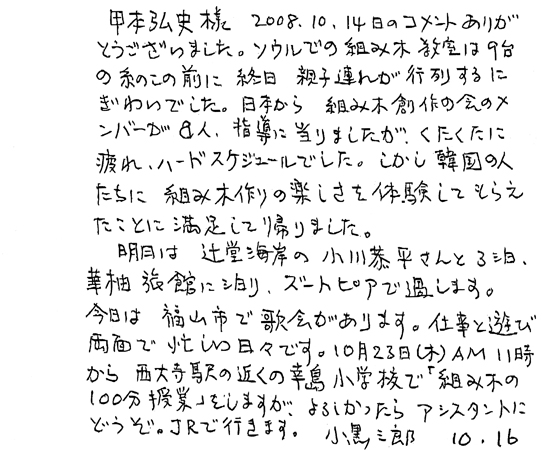 甲本弘史様 2008.10.14日のコメントありが
とうございました。ソウルでの組み木教室は9台
の糸のこの前に 終日 親子連れが行列するに
ぎわいでした。日本から 組み木創作の会のメ
ンバーが8人、指導に当りましたが、くたくたに
疲れ、ハードスケジュールでした。しかし韓国の人
たちに 組み木作りの楽しさを体験してもらえ
たことに満足して帰りました。
明日は 辻堂海岸の 小川恭平さんと3泊、
華柚旅館に泊り、ズートピアで過します。
今日は 福山市で歌会があります。仕事と遊び
両面で 忙しい日々です。10月23日(木)AM11時
から 西大寺駅の近くの幸島小学校で「組み木の
100分授業」をしますが、よろしかったら アシスタントに
どうぞ。JRで行きます。 小黒三郎 10.16